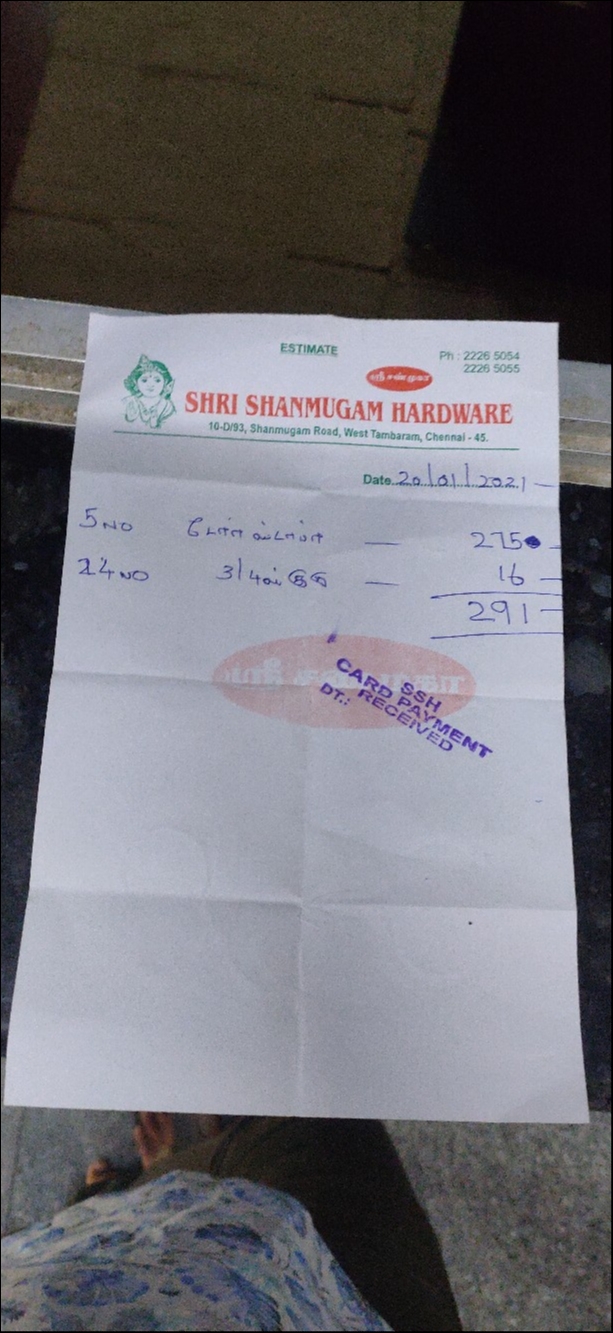 ESTIMATE
Ph : 2226 5054
2226 5055
ஸ்ரீ சண்முகா
SHRI SHANMUGAM HARDWARE
10-D/93, Shanmugam Road, West Tambaram, Chennai - 45.
Date 20/01/2021
5 NO டோர் ஸ்டாப்பர் — 275
24 NO 3/4 — 16
291
SSH
CARD PAYMENT
RECEIVED
DT.: